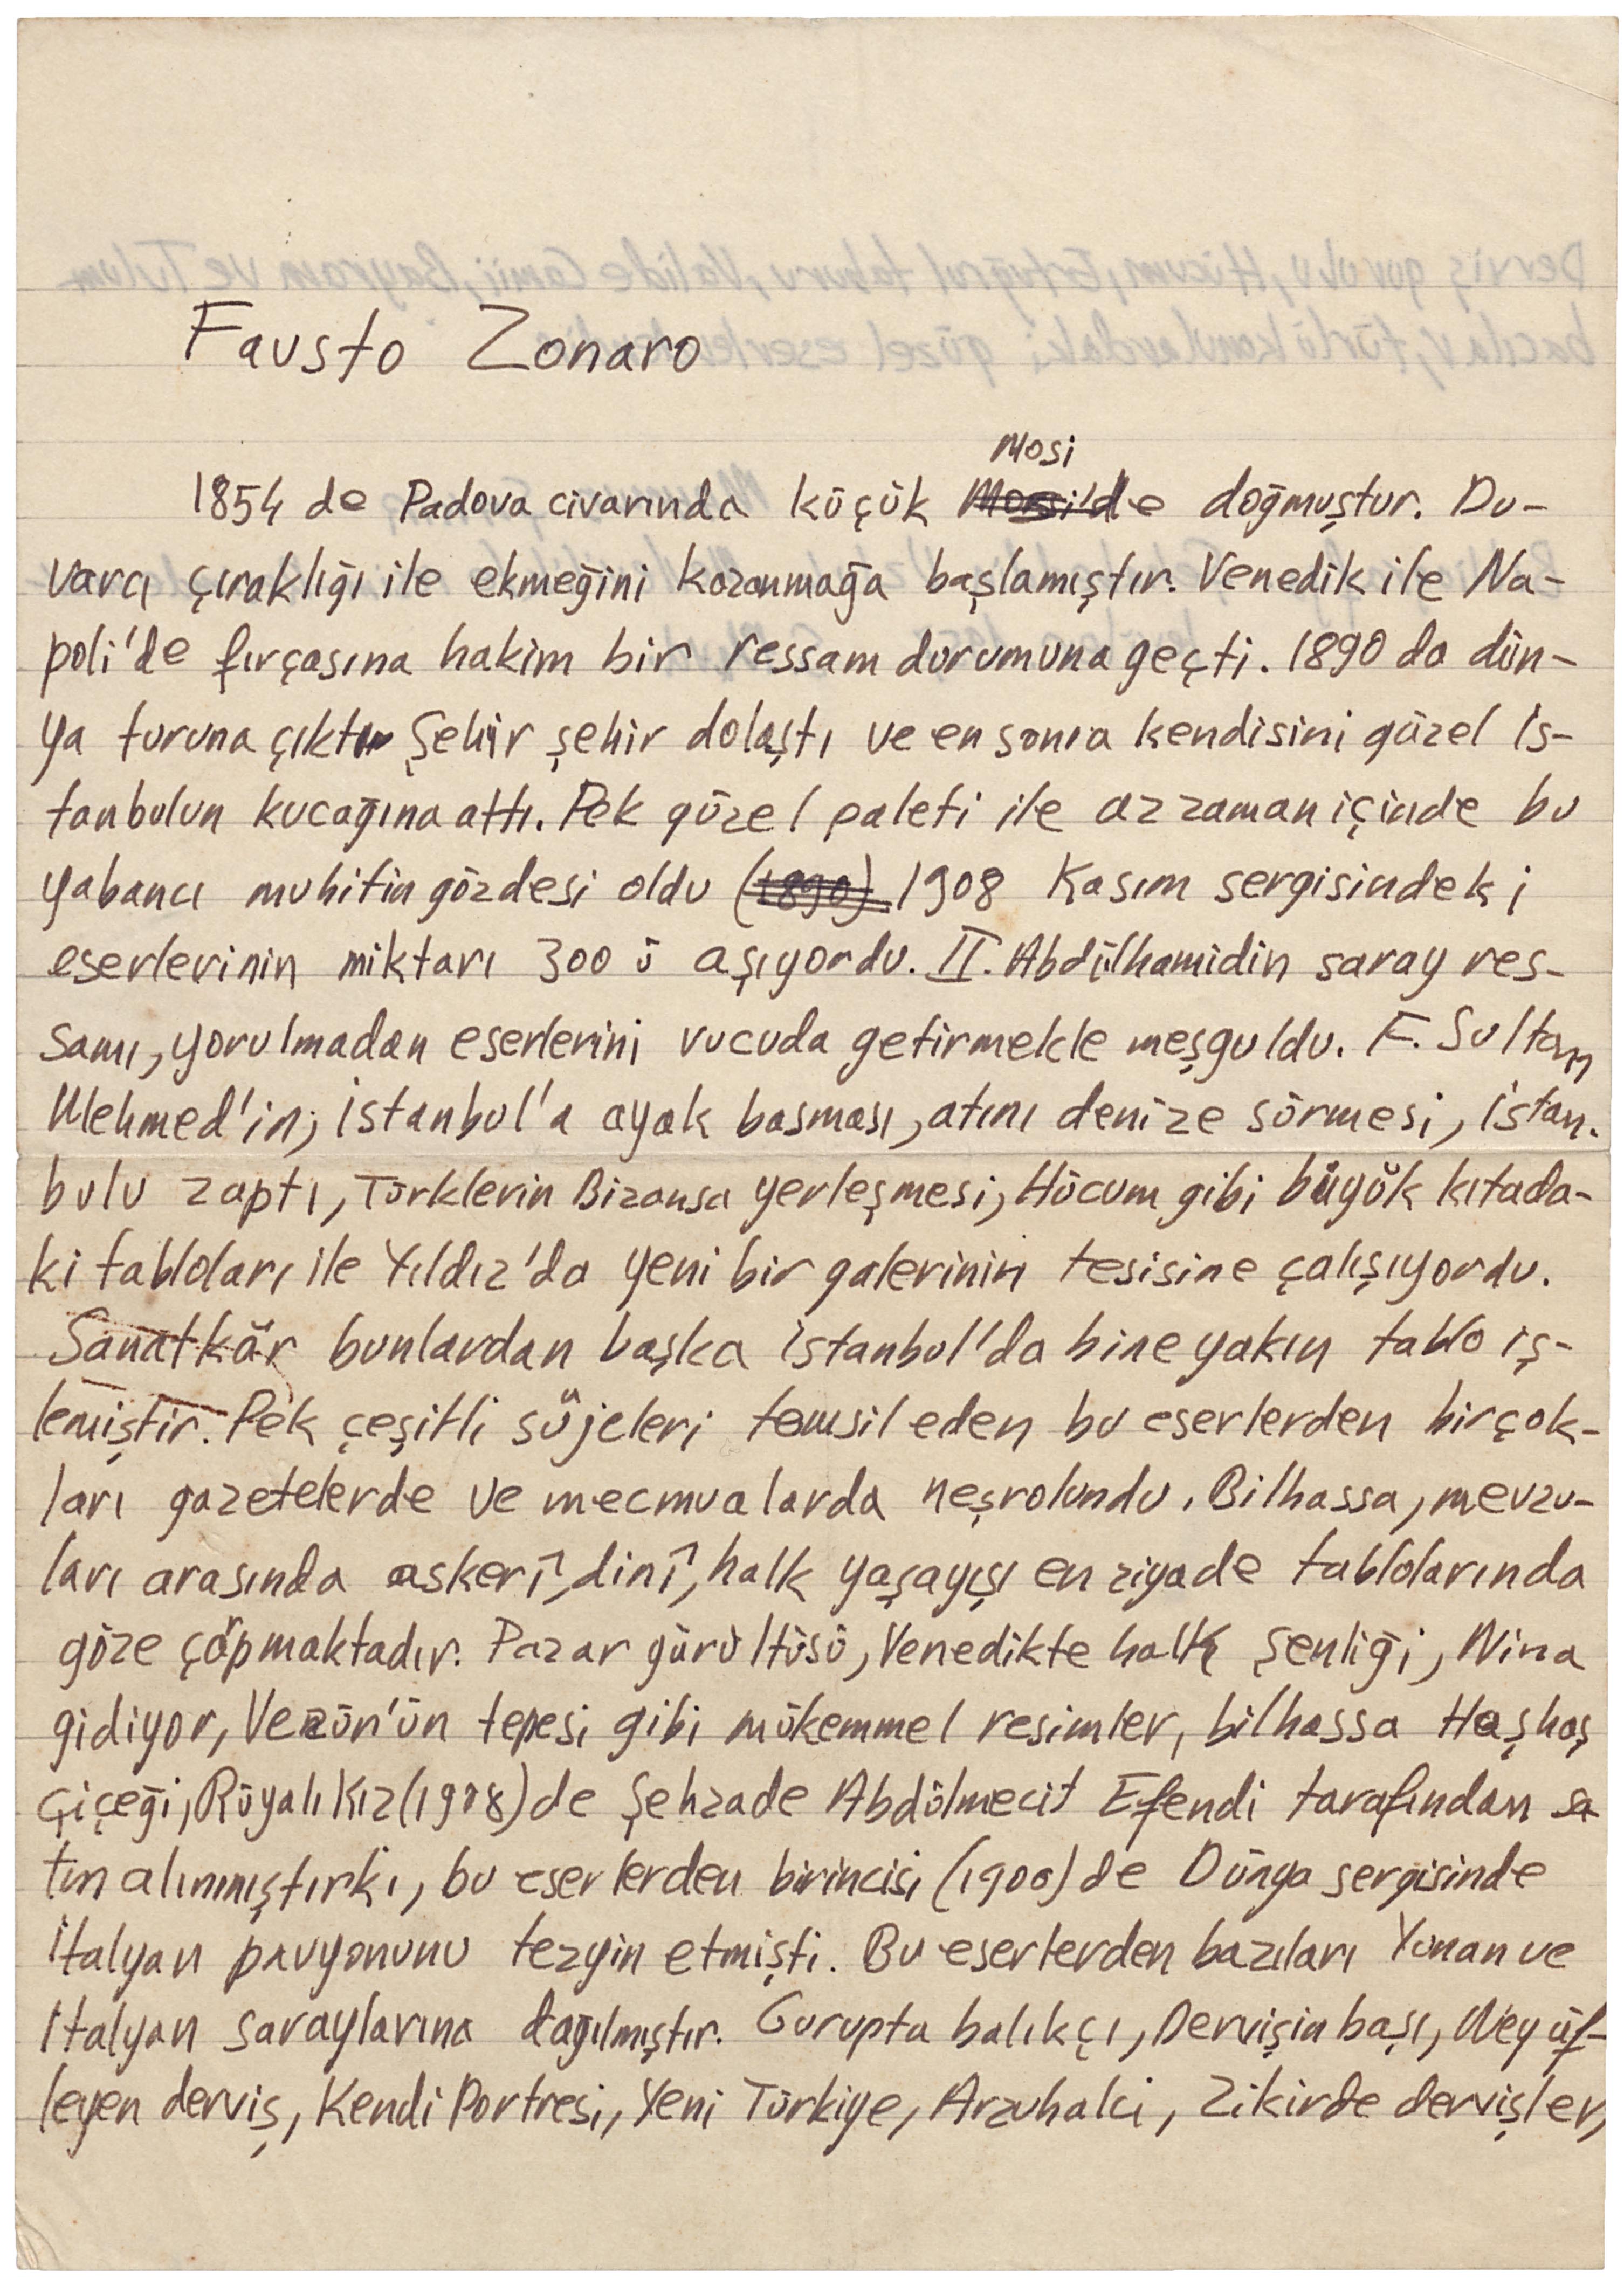 Fausto Zonaro
Mosi
1854 de Padova civarında küçük Morsi'de doğmuştur. Du-
varcı çıraklığı ile ekmeğini kazanmağa başlamıştır. Venedik ile Na-
poli'de fırçasına hakim bir ressam durumuna geçti. 1890 da dün-
ya turuna çıktı Şehir şehir dolaştı ve en sonra kendisini güzel İs-
tanbulun kucağına attı. Pek güzel paleti ile az zaman içinde bu
yabancı muhitin gözdesi oldu (1890) 1908 Kasım sergisindeki
eserlerinin miktarı 300 ü aşıyordu. II. Abdülhamidin saray res-
samı, yorulmadan eserlerini vucuda getirmekle meşguldu. F. Sultan
Mehmed'in; İstanbul'a ayak basması, atını denize sürmesi, İstan-
bulu zaptı, Türklerin Bizansa yerleşmesi, Hücum gibi büyük kıtada-
ki tabloları ile Yıldız'da yeni bir galerinin tesisine çalışıyordu.
Sanatkâr bunlardan başka İstanbul'da bine yakın tablo iş-
lemiştir. Pek çeşitli süjeleri temsil eden bu eserlerden birçok-
ları gazetelerde ve mecmualarda neşrolundu. Bilhassa, mevzu-
ları arasında askerî, dinî, halk yaşayışı en ziyade tablolarında
göze çarpmaktadır. Pazar gürültüsü, Venedikte halk şenliği, Nina
gidiyor, Vezün'ün tepesi gibi mükemmel resimler, bilhassa Haşhaş
Çiçeği, Rüyalı Kız (1908) de Şehzade Abdülmecit Efendi tarafından sa
tın alınmıştırki, bu eserlerden birincisi (1900) de Dünya sergisinde
İtalyan pavyonunu tezyin etmişti. Bu eserlerden bazıları Yunan ve
İtalyan saraylarına dağılmıştır. Gurupta balıkçı, Dervişin başı, Ney üf-
leyen derviş, Kendi Portresi, Yeni Türkiye, Arzuhalci, Zikirde dervişler,